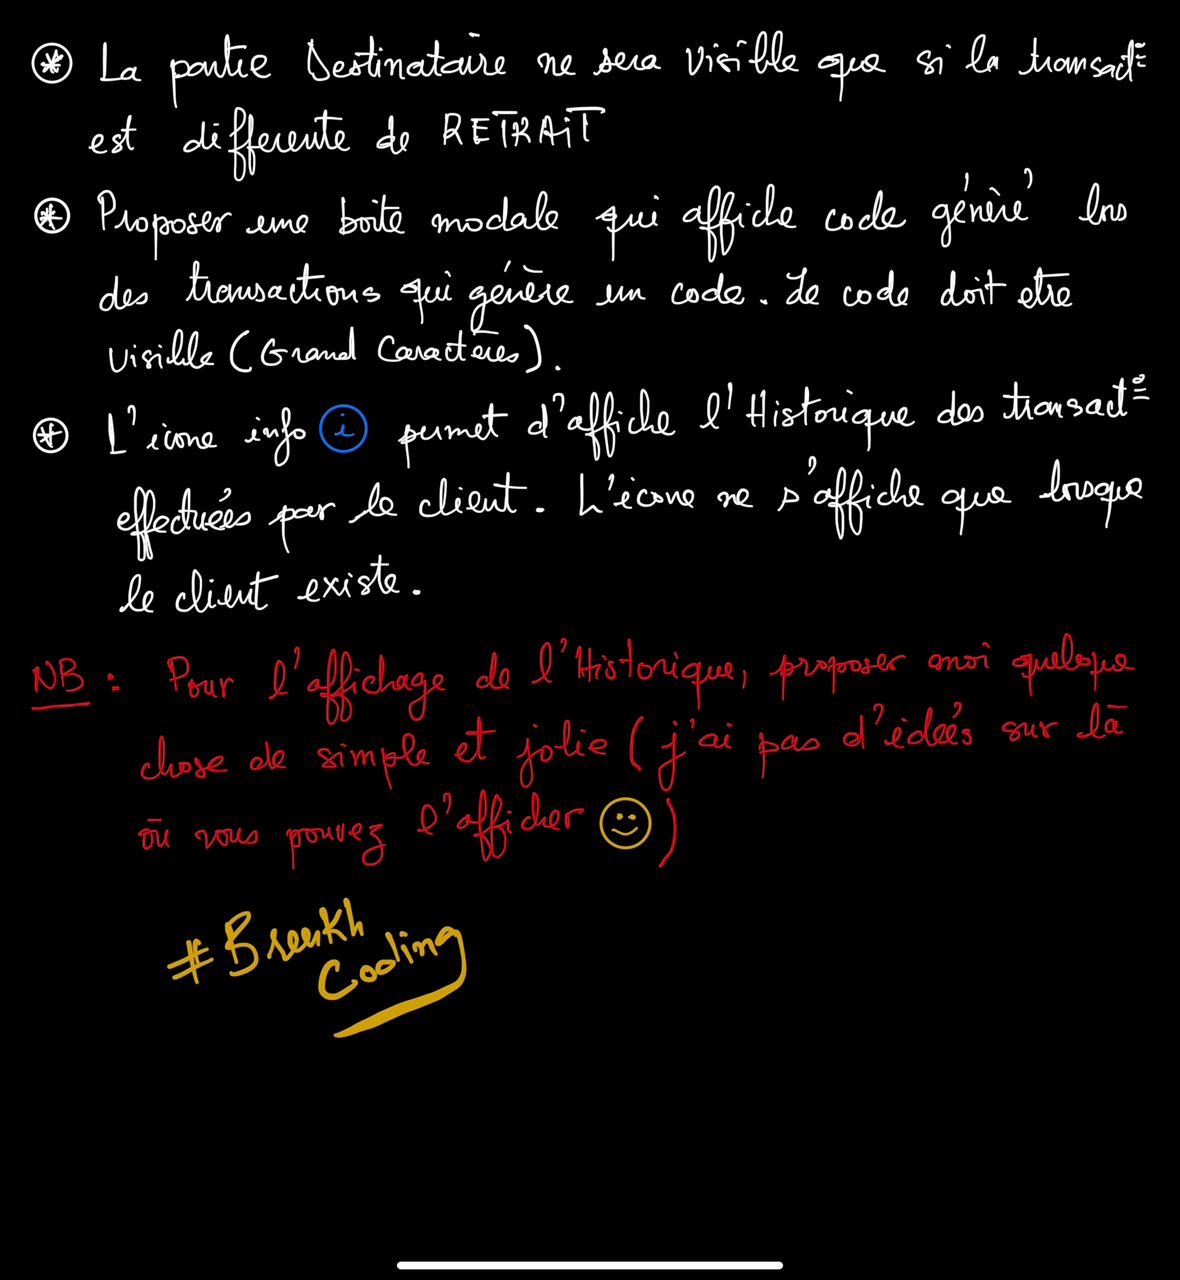 * La partie Destinataire ne sera visible que si la transact=
est differente de RETRAIT
* Proposer une boite modale qui affiche code généré lors
des transactions qui génère un code. Le code doit etre
visible (Grand Caractères).
* L'icone info i permet d'affiche l'Historique des transact°=
effectuées par le client. L'icone ne s'affiche que lorsque
le client existe.
NB : Pour l'affichage de l'Historique, proposer moi quelque
chose de simple et jolie (j'ai pas d'idées sur là
où vous pouvez l'afficher)
#Breukh
Coding